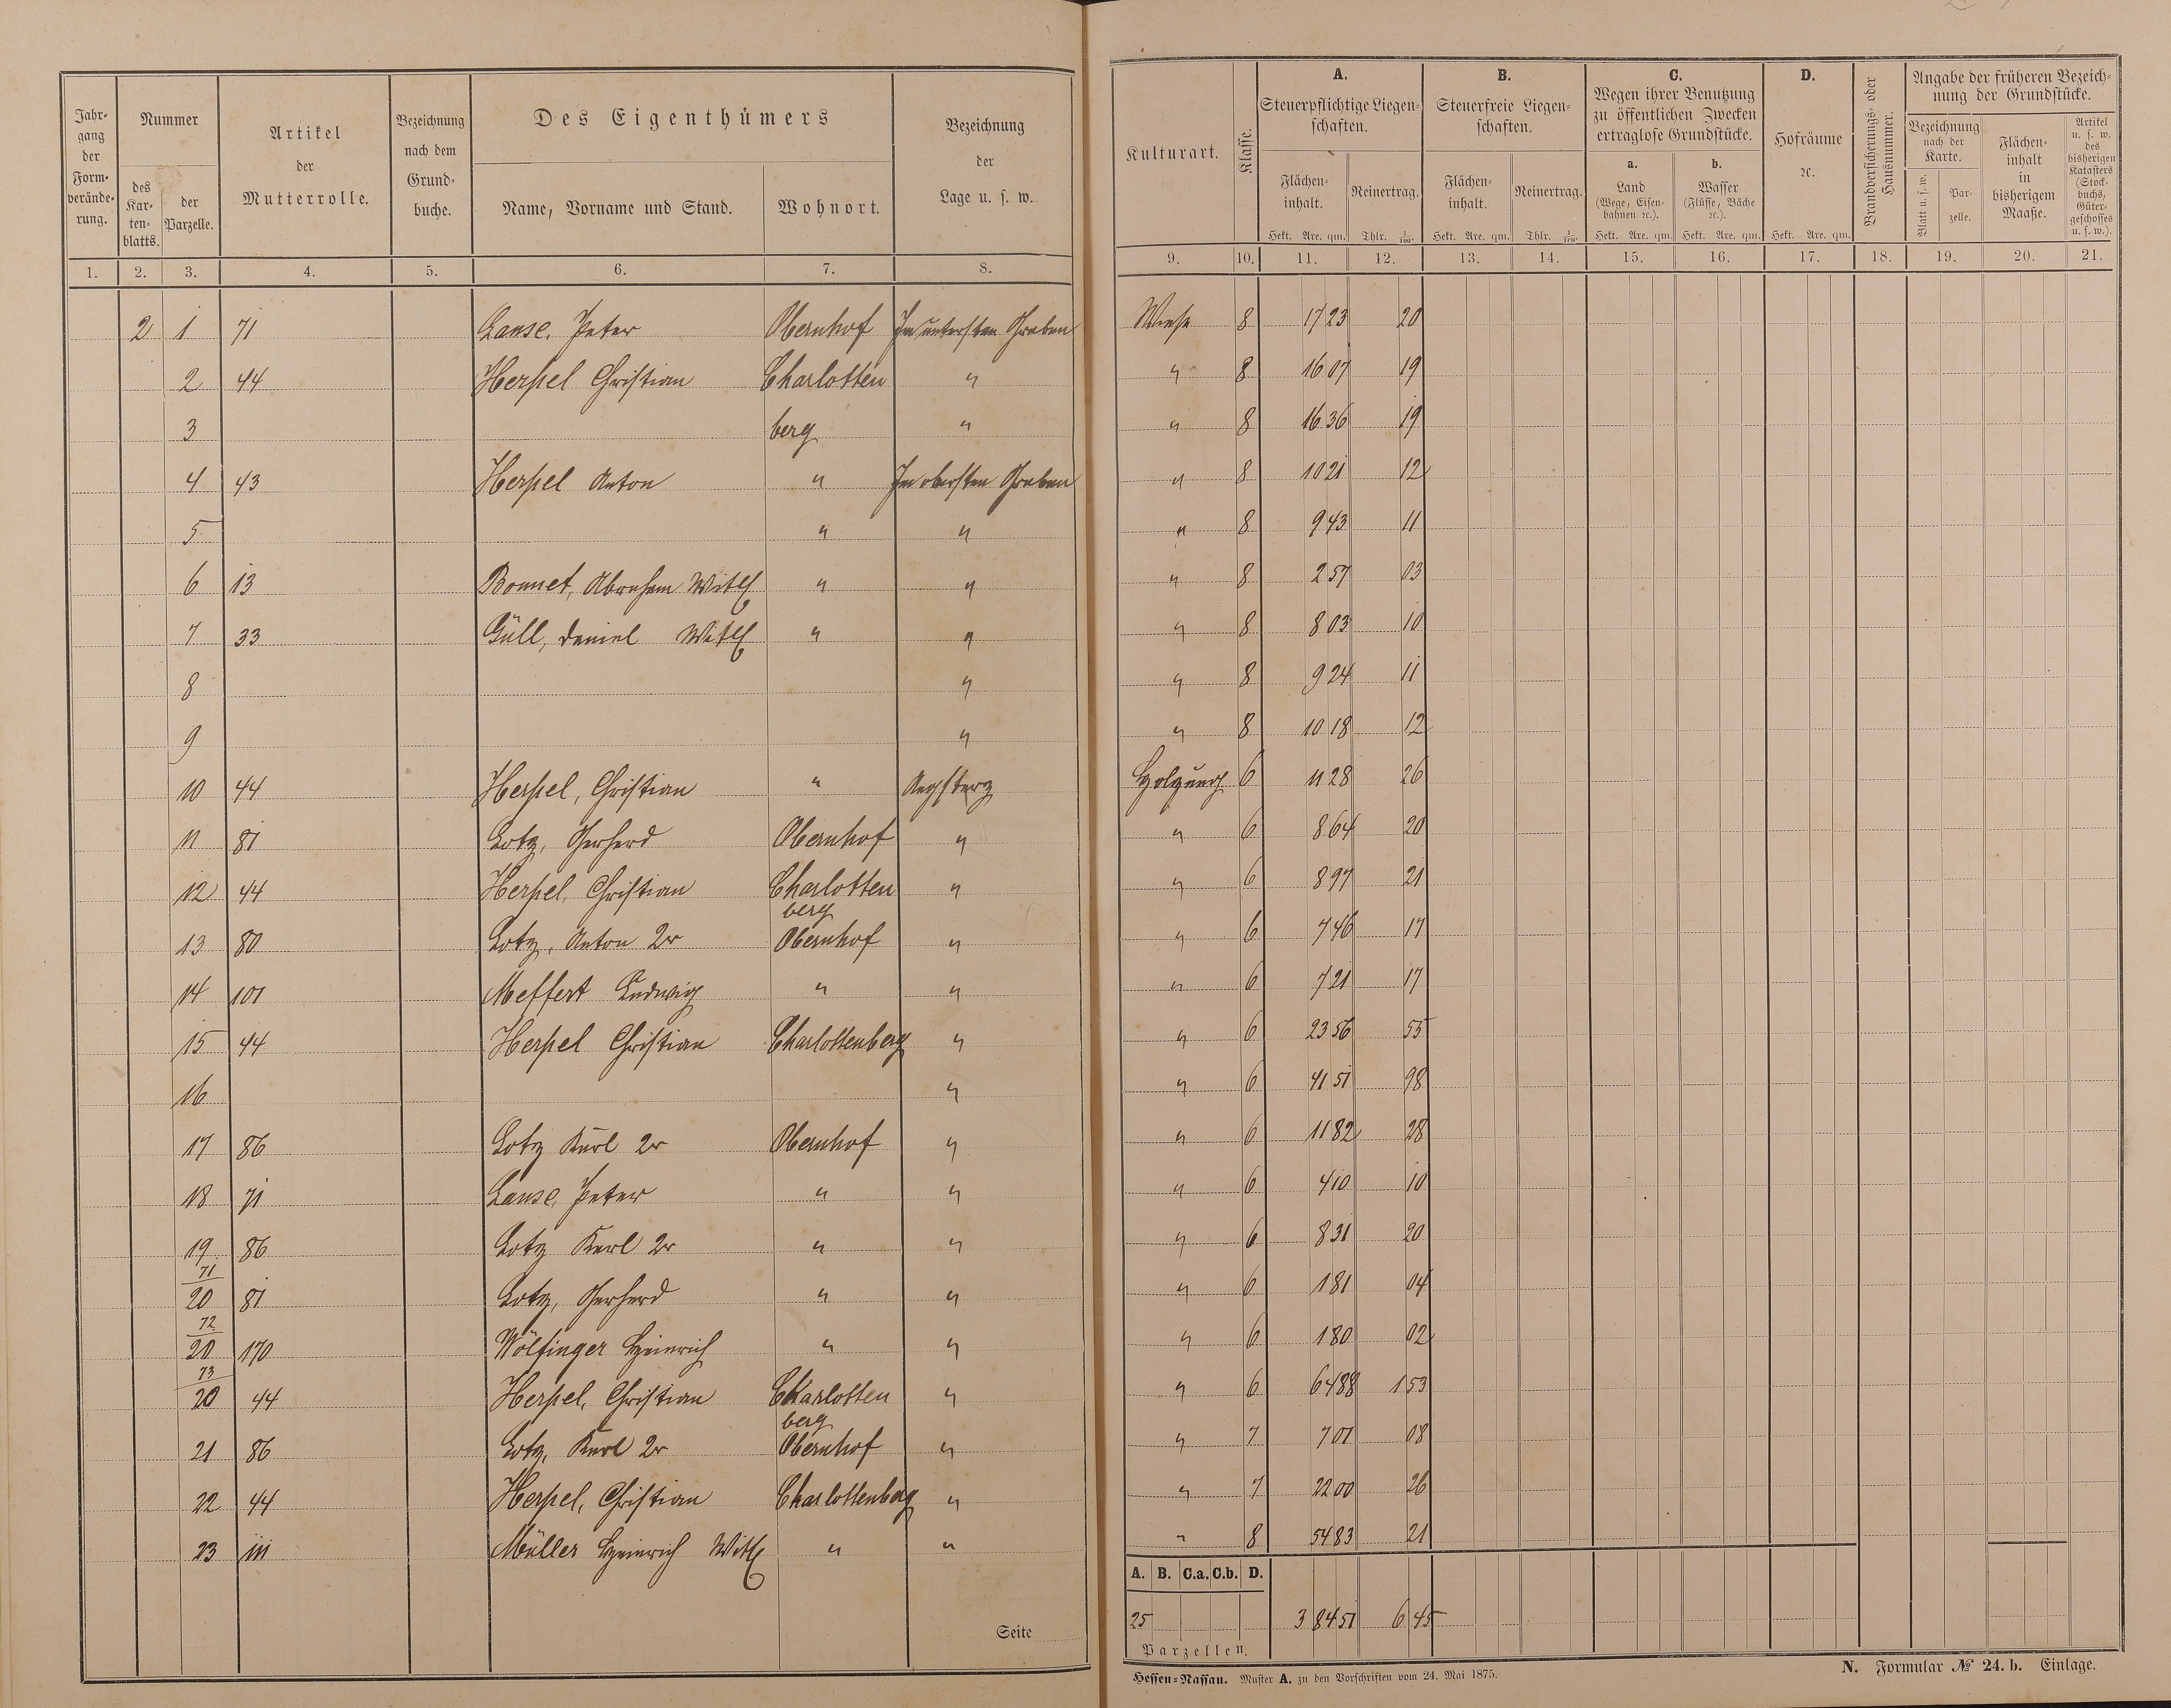 Jahrgang der Formveränderung.
Nummer
des Kartenblatts.
der Parzelle.
Artikel der Mutterrolle.
Bezeichnung nach dem Grundbuche.
Des Eigenthümers
Name, Vorname und Stand.
Wohnort.
Bezeichnung der Lage u. s. w.
1. 2. 3. 4. 5. 6. 7. 8.
Kulturart.
Klasse.
A.
Steuerpflichtige Liegenschaften.
Flächeninhalt.
Hekt. Are. qm.
Reinertrag.
Thlr. 1/100.
B.
Steuerfreie Liegenschaften.
Flächeninhalt.
Hekt. Are. qm.
Reinertrag.
Thlr. 1/100.
C.
Wegen ihrer Benutzung zu öffentlichen Zwecken ertraglose Grundstücke.
a.
Land
(Wege, Eisenbahnen ꝛc.).
Hekt. Are. qm.
b.
Wasser
(Flüsse, Bäche ꝛc.).
Hekt. Are. qm.
D.
Hofräume ꝛc.
Hekt. Are. qm.
Brandversicherungs- oder Hausnummer.
Angabe der früheren Bezeichnung der Grundstücke.
Bezeichnung nach der Karte.
Blatt u. s. w.
Parzelle.
Flächeninhalt in bisherigem Maaße.
Artikel u. s. w. des bisherigen Katasters (Stockbuchs, Gütergeschosses u. s. w.).
9. 10. 11. 12. 13. 14. 15. 16. 17. 18. 19. 20. 21.
2 1 71 Lanse, Peter Obernhof Im untersten Graben Wiese 8 17 23 20
2 44 Herpel Christian Charlotten " " 8 16 07 19
3 berg " " 8 16 36 19
4 43 Herpel Anton " Im obersten Graben " 8 10 21 12
5 " " " 8 9 43 11
6 13 Bonnet, Abraham Wittf " " " 8 2 57 03
7 33 Güll, Daniel Wittf " " " 8 8 03 10
8 " " 8 9 24 11
9 " " 8 10 18 12
10 44 Herpel, Christian " Holzung 6 11 28 26
11 81 Lotz, Gerhard Obernhof " " 6 8 64 20
12 44 Herpel, Christian Charlotten berg " " 6 8 97 21
13 80 Lotz, Anton 2r Obernhof " " 6 7 46 17
14 101 Meffert Ludwig " " " 6 7 21 17
15 44 Herpel Christian Charlottenberg " " 6 23 56 55
16 " " 6 41 51 98
17 86 Lotz Karl 2r Obernhof " " 6 11 82 28
18 71 Lanse, Peter " " " 6 4 10 10
19 86 Lotz Karl 2r " " " 6 8 31 20
71/20 81 Lotz, Gerhard " " " 6 1 81 04
72/20 170 Wölfinger Heinrich " " " 6 1 80 02
73/20 44 Herpel, Christian Charlotten berg " " 6 64 88 1 53
21 86 Lotz, Karl 2r Obernhof " " 7 7 01 08
22 44 Herpel, Christian Charlottenberg " " 7 22 00 26
23 111 Müller Heinrich Wittf " " " 8 54 83 21
A. B. C.a. C.b. D.
25 3 84 51 6 45
Parzellen.
Seite
Hessen-Nassau. Muster A. zu den Vorschriften vom 24. Mai 1875.
N. Formular № 24. b. Einlage.